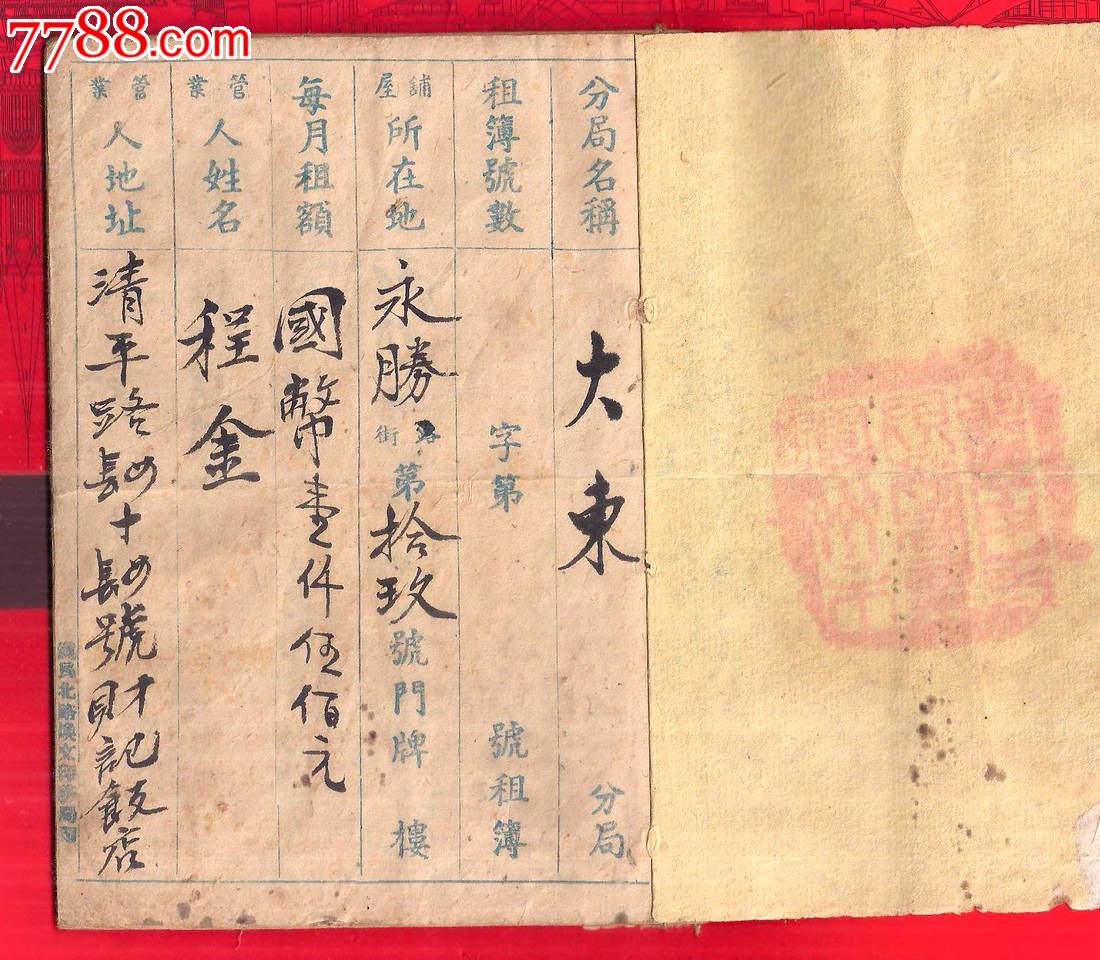 7788.com
分局名稱 大東 分局
租簿號數 字第 號租簿
舖屋所在地 永勝路街第拾玖號門牌 樓
每月租額 國幣壹仟伍佰元
管業人姓名 程金
管業人地址 清平路 十 號財記飯店
漢民北路煥文印務局印